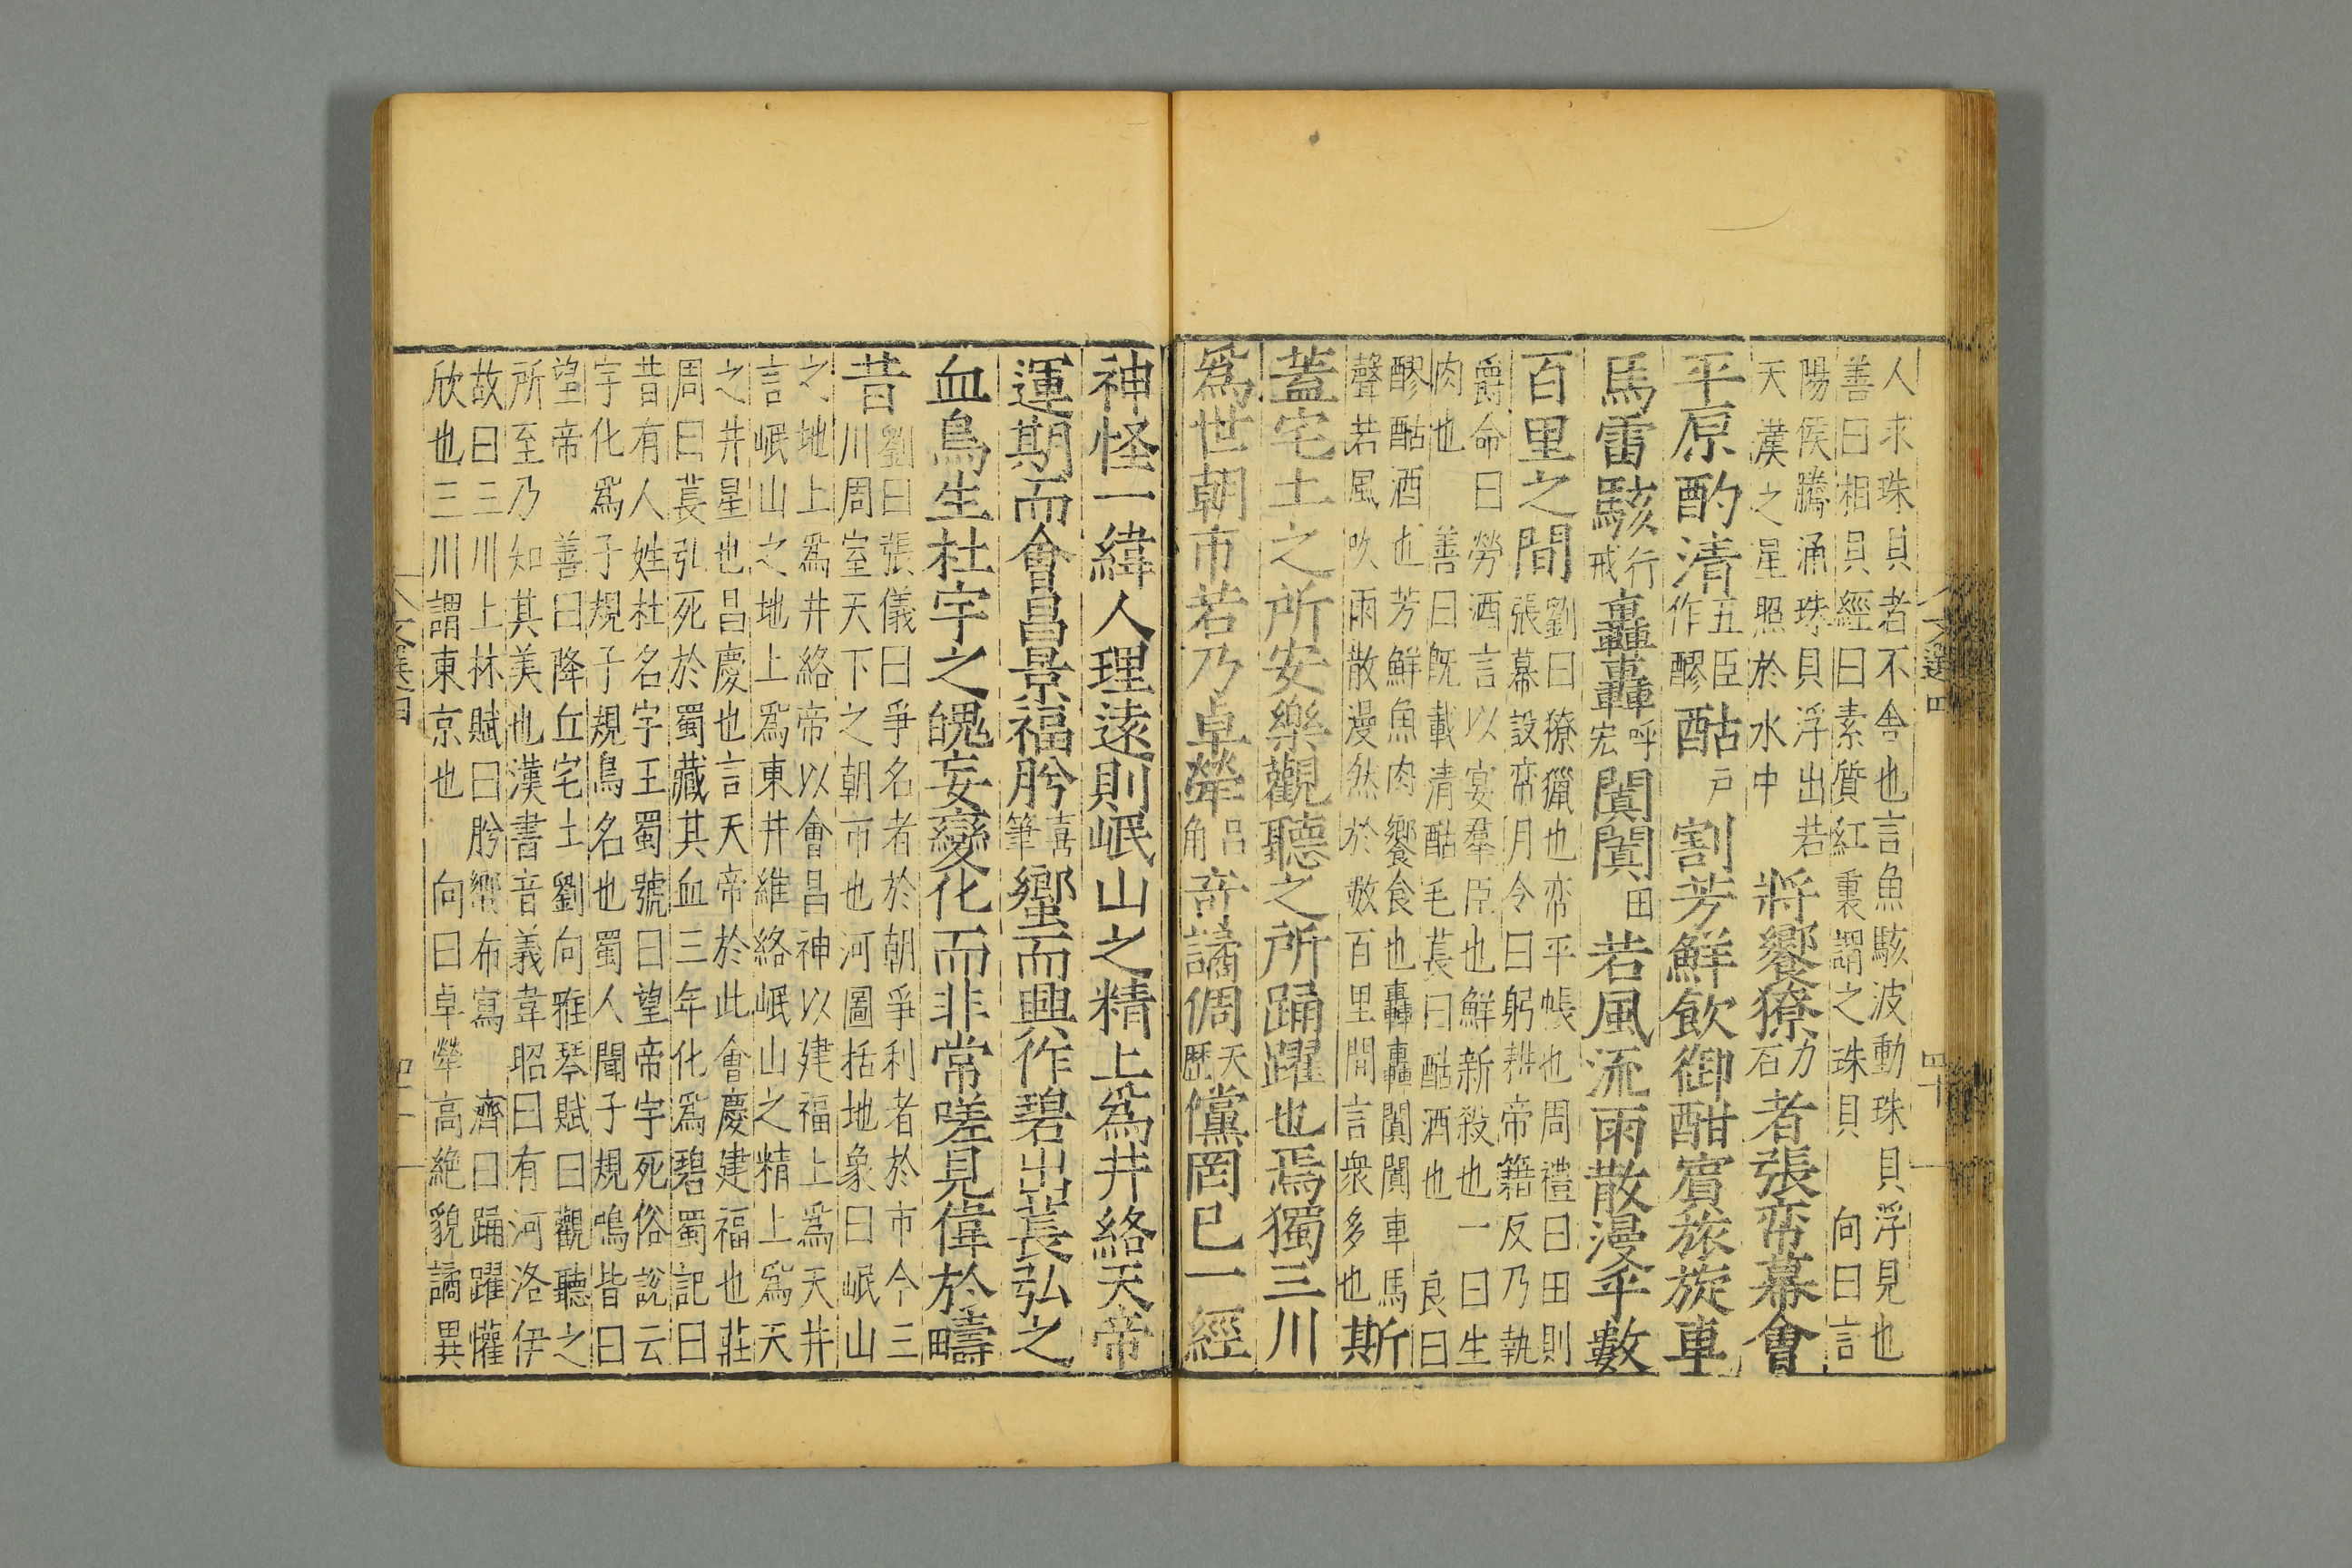 人求珠貝者不舍也言魚駭波動珠貝浮見也
善曰相貝經曰素質紅裏謂之珠貝 向曰言
陽侯騰涌珠貝浮出若
天漢之星照於水中
將饗獠力石者張帟幕會
平原酌清五臣作醪酤戶割芳鮮飲御酣賓旅旋車
馬雷駭行戒轟轟呼宏闐闐田若風流雨散漫乎數
百里之間
劉曰獠獵也帟平帳也周禮曰田則
張幕設帟月令曰躬耕帝籍反乃執
爵命曰勞酒言以宴羣臣也鮮新殺也一曰生
肉也 善曰旣載清酤毛萇曰酤酒也 良曰
醪酤酒也芳鮮魚肉饗食也轟轟闐闐車馬
聲若風吹雨散漫然於數百里間言衆多也
斯
其
蓋宅土之所安樂觀聽之所踊躍也焉獨三川
爲世朝市若乃卓犖呂角奇譎倜天歷儻罔已一經
文選四
四十
神怪一緯人理遠則岷山之精上爲井絡天帝
運期而會昌景福肹喜筆蠁而興作碧出萇弘之
血鳥生杜宇之魄妄變化而非常嗟見偉於疇
昔
劉曰張儀曰爭名者於朝爭利者於市今三
川周室天下之朝市也河圖括地象曰岷山
之地上爲井絡帝以會昌神以建福上爲天井
言岷山之地上爲東井維絡岷山之精上爲天
之井星也昌慶也言天帝於此會慶建福也莊
周曰萇弘死於蜀藏其血三年化爲碧蜀記曰
昔有人姓杜名宇王蜀號曰望帝宇死俗說云
宇化爲子規子規鳥名也蜀人聞子規鳴皆曰
望帝 善曰降丘宅土劉向雅琴賦曰觀聽之
所至乃知其美也漢書音義韋昭曰有河洛伊
故曰三川上林賦曰肹蠁布寫 濟曰踊躍懽
欣也三川謂東京也 向曰卓犖高絶貌譎異
文選四
四十一